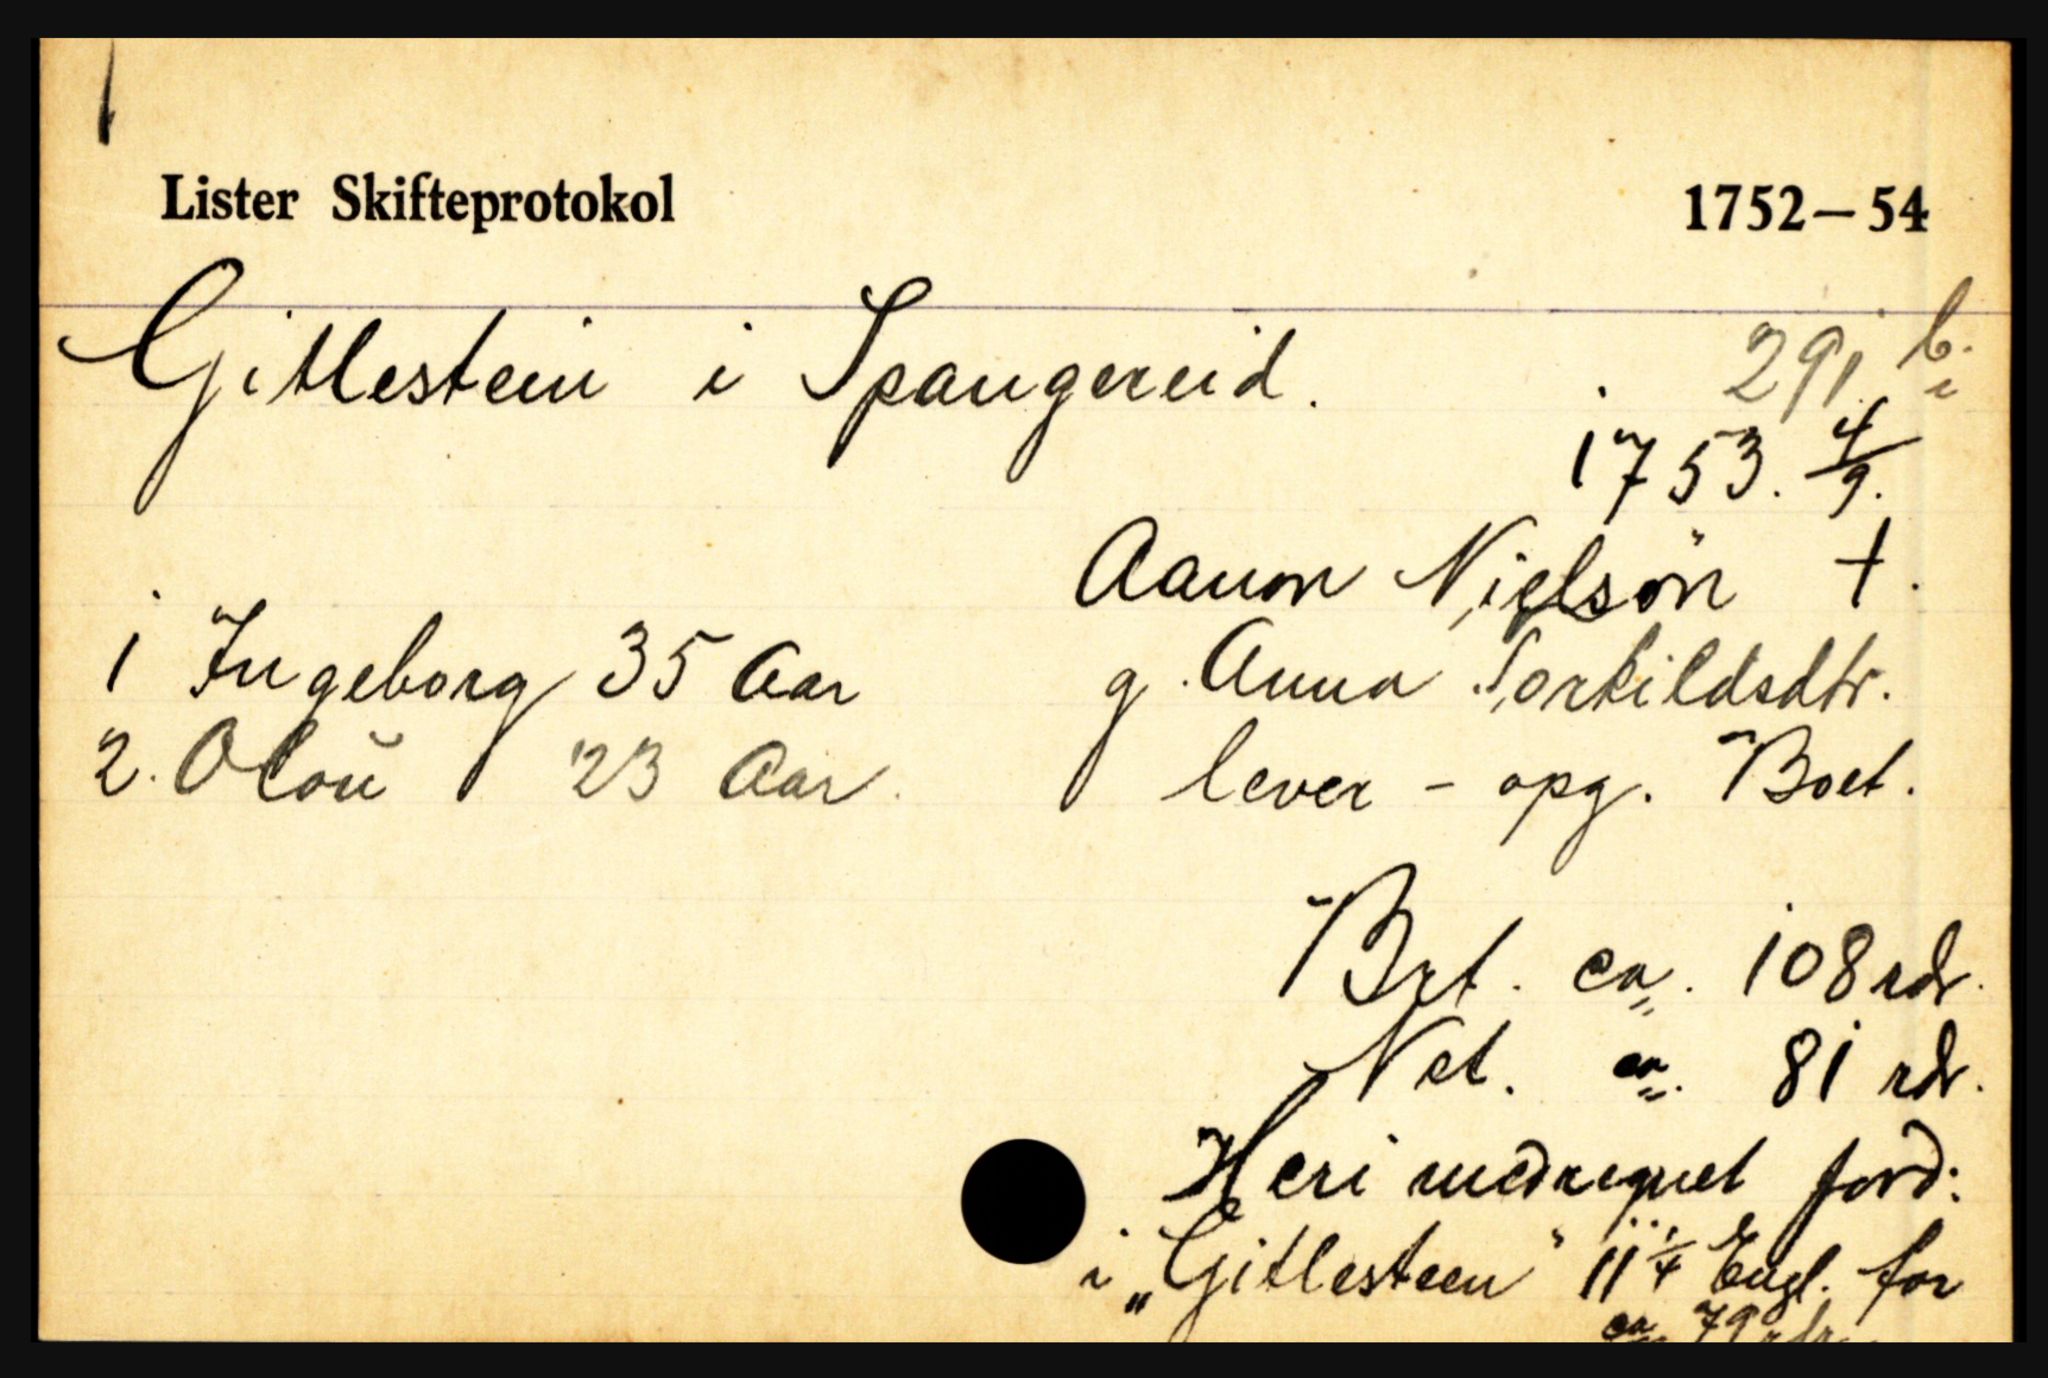 Lister Skifteprotokol 1752–54
Gitlestein i Spangereid.
291 b.
1753. 4/9.
Aanon Nielsön †.
1 Ingeborg 35 Aar
g. Anna Torkildsdtr.
2. Oloŭ 23 Aar.
lever - opg. Boet.
Brt. ca. 108 rdr.
Net. ca. 81 rdr.
Heri medregnet jord:
i „Gitlesteen" 11 1/4 Engl. for
ca 79 rdr.